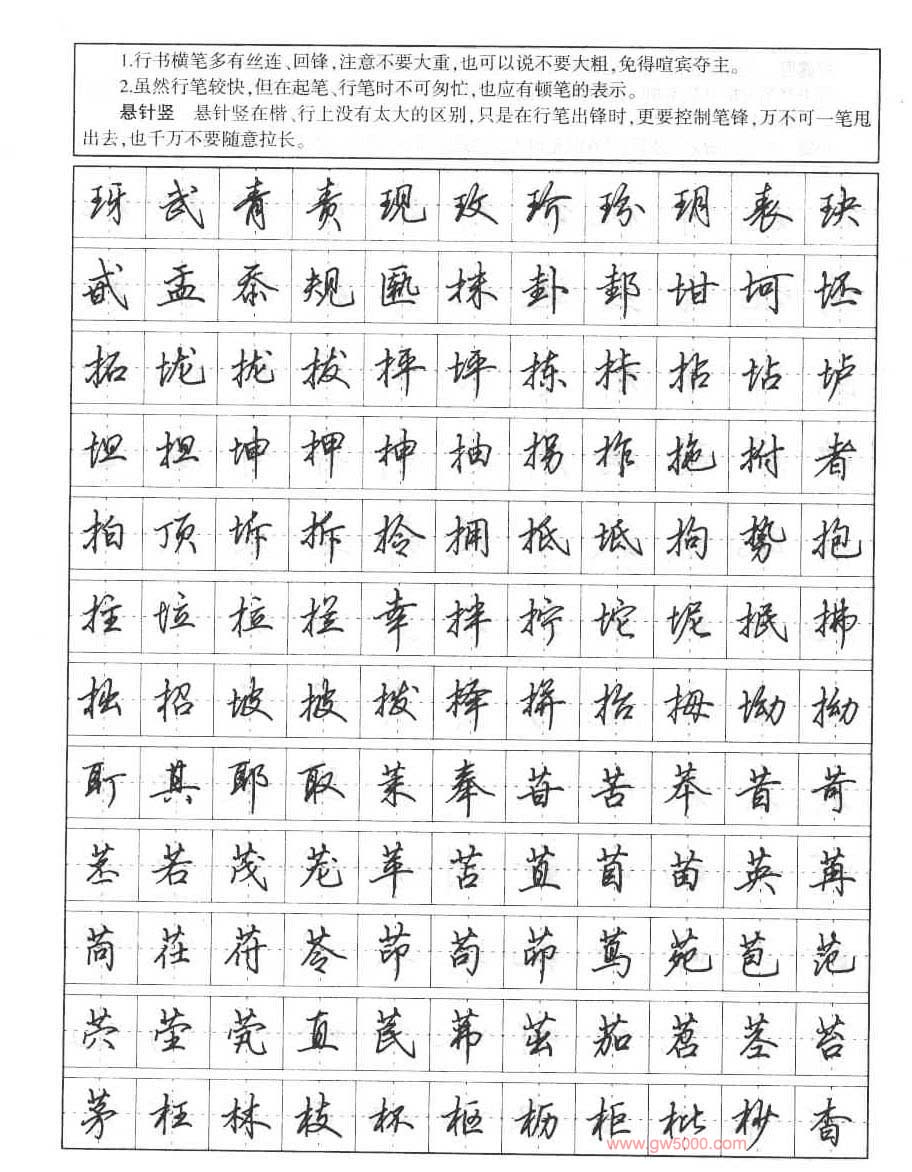 1.行书横笔多有丝连、回锋,注意不要大重,也可以说不要大粗,免得喧宾夺主。
2.虽然行笔较快,但在起笔、行笔时不可匆忙,也应有顿笔的表示。
悬针竖 悬针竖在楷、行上没有太大的区别,只是在行笔出锋时,更要控制笔锋,万不可一笔甩
出去,也千万不要随意拉长。
玡 武 青 责 现 玫 玠 玢 玥 表 玦
甙 盂 忝 规 匦 抹 卦 邽 坩 坷 坯
拓 垅 拢 拔 抨 坪 拣 拤 拈 坫 垆
坦 担 坤 押 抻 抽 拐 拃 拖 拊 者
拍 顶 坼 拆 拎 拥 抵 坻 拘 势 抱
拄 垃 拉 拦 幸 拌 拧 坨 坭 抿 拂
拙 招 坡 披 拨 择 拚 抬 拇 坳 拗
耵 其 耶 取 茉 奉 苷 苦 苯 昔 苛
苤 若 茂 茏 苹 苫 苴 苜 苗 英 苒
苘 茌 苻 苓 茚 苟 茆 茑 苑 苞 范
茓 茔 茕 直 苠 茀 茁 茄 茗 茎 苔
茅 枉 林 枝 杯 枢 枥 柜 枇 杪 杳
www.gw5000.com